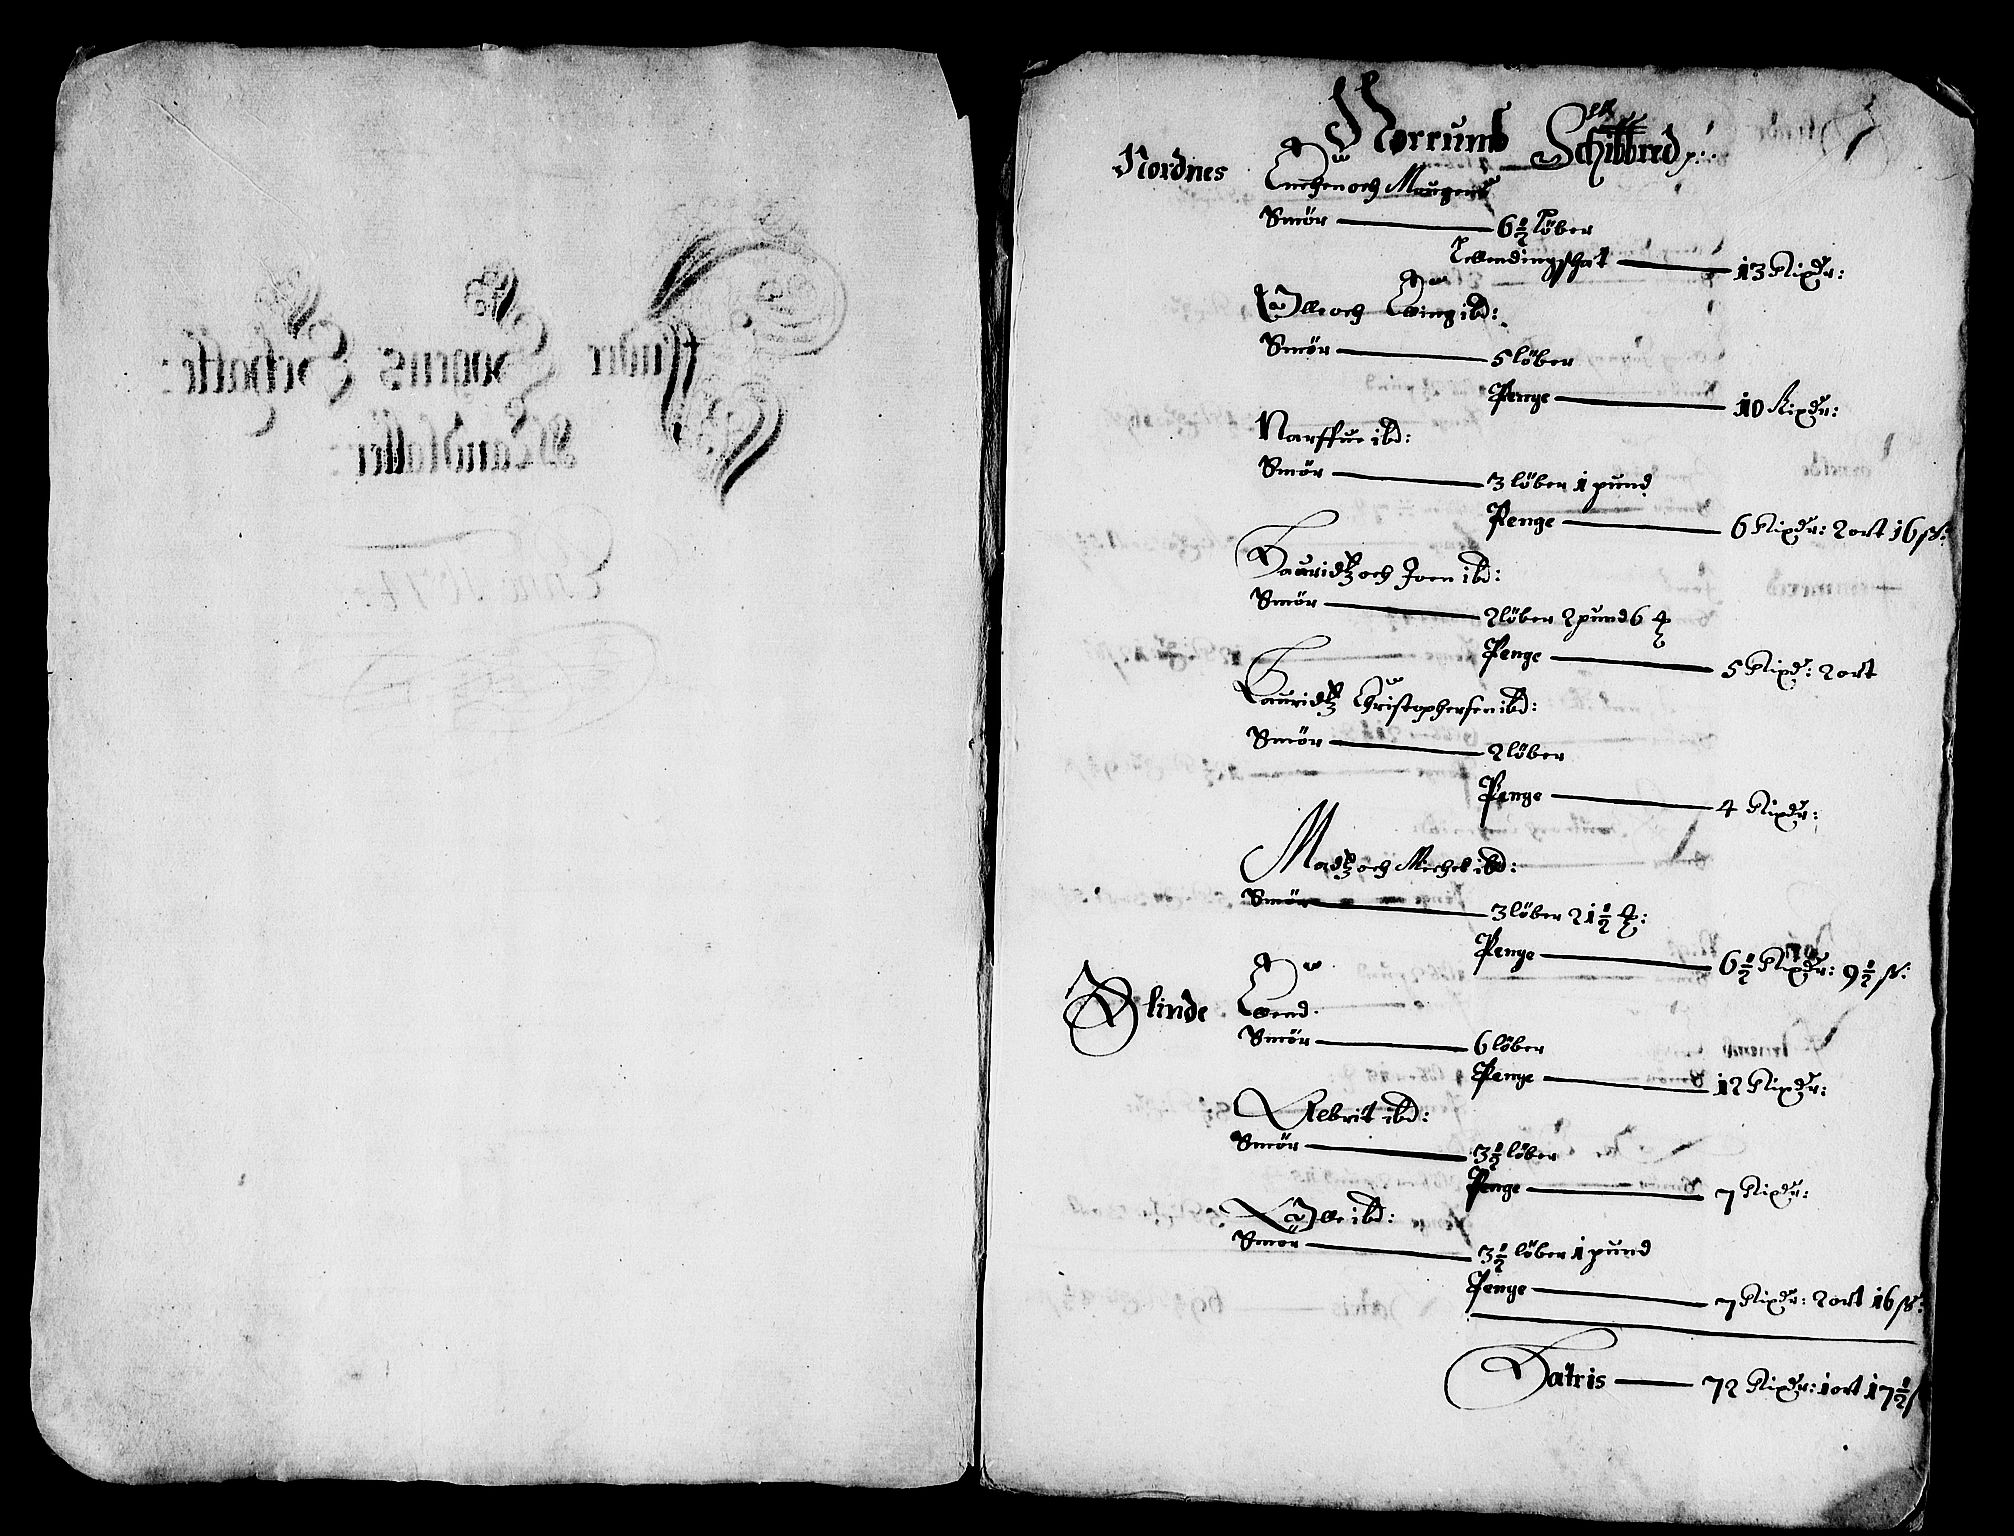 Norrums Schibbred
Nordnes
Enchen och Maugens
Smör — 6½ löber
Lewendingschat — 13 Rixdr:
Olle och Elling ibd:
Smör — 5 löber
Penge — 10 Rixdr:
Narffue ibd:
Smör — 3 löber 1 pund
Penge — 6 Rixdr: 2 ort 16 ß:
Lauridtz och Joen ibd:
Smör — 2 löber 2 pund 6
Penge — 5 Rixdr: 2 ort
Lauridtz Christophersen ibd:
Smör — 2 löber
Penge — 4 Rixdr:
Madtz och Michel ibd:
Smör — 3 löber 21½
Penge — 6½ Rixdr: 9½ ß:
Slinde
Ewend
Smör — 6 löber
Penge — 12 Rixdr:
Albrit ibd:
Smör — 3½ löber
Penge — 7 Rixdr:
Olle ibd:
Smör — 3½ löber 1 pund
Penge — 7 Rixdr: 2 ort 16 ß:
Latris — 72 Rixdr: 1 ort 17½ ß